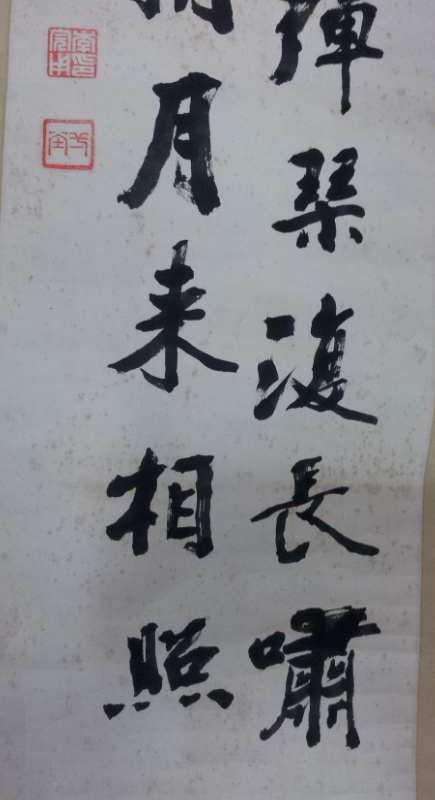 彈琴復長嘯
月来相照